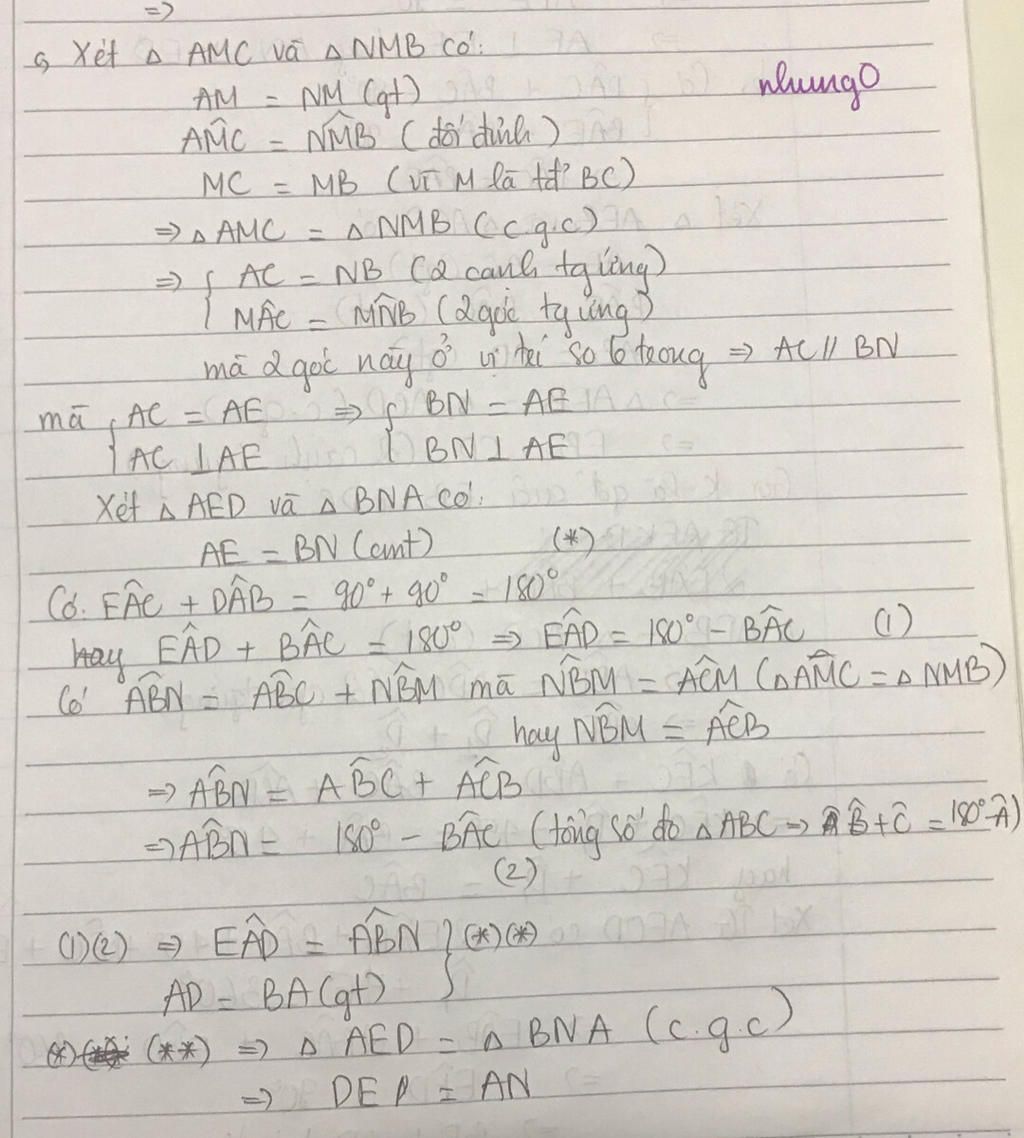 =>
c, Xét △ AMC và △ NMB có:
nhung0
AM = NM (gt)
AM̂C = NM̂B (đối đỉnh)
MC = MB (vì M là tđ BC)
=> △ AMC = △ NMB (c.g.c)
=> { AC = NB (2 cạnh tg ứng)
MÂC = MN̂B (2 góc tg ứng)
mà 2 góc này ở vị trí so le trong => AC // BN
mà { AC = AE => { BN = AE
AC ⊥ AE BN ⊥ AE
Xét △ AED và △ BNA có:
AE = BN (cmt) (*)
Có: EÂC + DÂB = 90° + 90° = 180°
hay EÂD + BÂC = 180° => EÂD = 180° - BÂC (1)
Có AB̂N = AB̂C + NB̂M mà NB̂M = AĈM (△AMC = △ NMB)
hay NB̂M = AĈB
=> AB̂N = AB̂C + AĈB
=> AB̂N = 180° - BÂC (tổng số đo △ ABC => B̂ + Ĉ = 180° - Â)
(2)
(1)(2) => EÂD = AB̂N } (*)(*)
AD = BA (gt)
(*) (**) => △ AED = △ BNA (c.g.c)
=> DE = AN